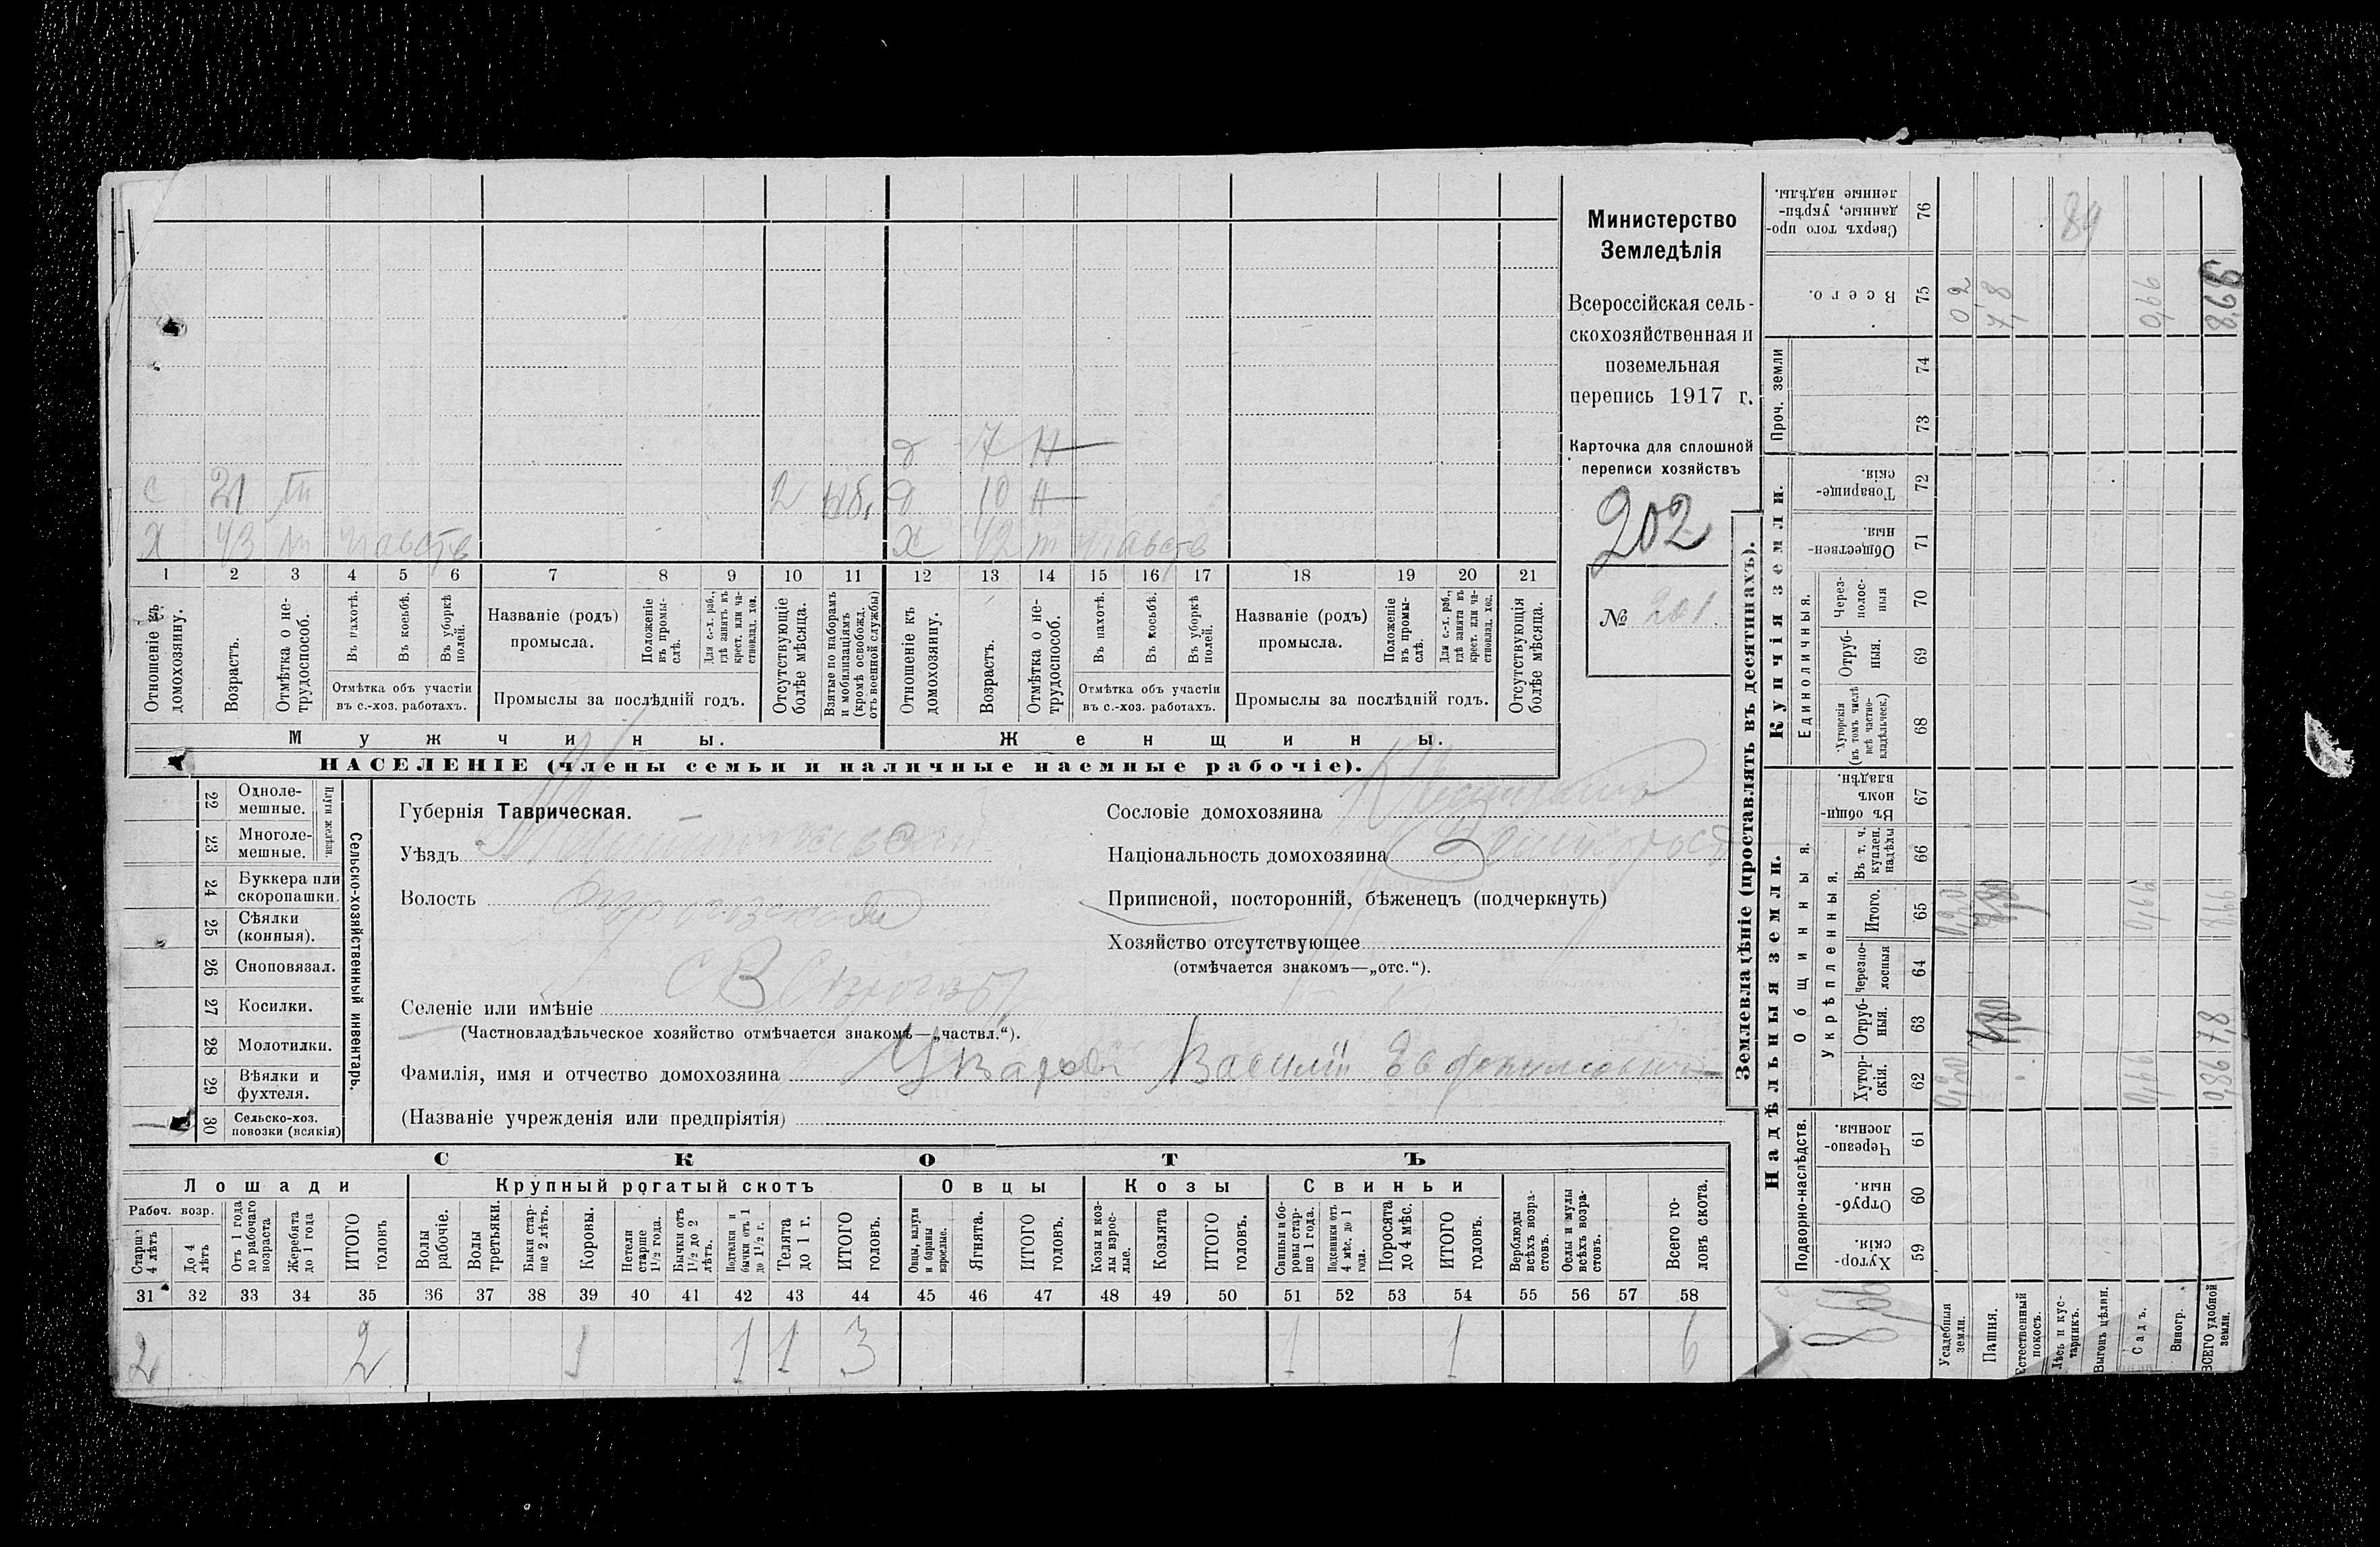 д 7 Н
с 21 т 2 моб. д 10 Н
х 43 т участв х 42 т участв
1 2 3 4 5 6 7 8 9 10 11 12 13 14 15 16 17 18 19 20 21
Отношеніе къ домохозяину.
Возрастъ.
Отмѣтка о не-трудоспособ.
Въ пахотѣ.
Въ косьбѣ.
Въ уборкѣ полей.
Отмѣтка объ участіи
въ с.-хоз. работахъ.
Названіе (родъ)
промысла.
Положеніе въ промы-слѣ.
Для с.-х. раб., гдѣ занятъ въ крест. или ча-стновлад. хоз.
Промыслы за послѣдній годъ.
Отсутствующіе болѣе мѣсяца.
Взятые по наборамъ и мобилизаціямъ (кромѣ освобожд. отъ военной службы)
Отношеніе къ домохозяину.
Возрастъ.
Отмѣтка о не-трудоспособ.
Въ пахотѣ.
Въ косьбѣ.
Въ уборкѣ полей.
Отмѣтка объ участіи
въ с.-хоз. работахъ.
Названіе (родъ)
промысла.
Положеніе въ промы-слѣ.
Для с.-х. раб., гдѣ занята въ крест. или ча-стновлад. хоз.
Промыслы за послѣдній годъ.
Отсутствующія болѣе мѣсяца.
Мужчины. Женщины.
НАСЕЛЕНІЕ (члены семьи и наличные наемные рабочіе).
Министерство
Земледѣлія
Всероссійская сель-
скохозяйственная и
поземельная
перепись 1917 г.
Карточка для сплошной
переписи хозяйствъ
202
№ 201.
22 Одноле-мешные.
23 Многоле-мешные.
Плуги желѣзн.
24 Буккера или скоропашки.
25 Сѣялки (конныя).
26 Сноповязал.
27 Косилки.
28 Молотилки.
29 Вѣялки и фухтеля.
30 Сельско-хоз. повозки (всякія)
Сельско-хозяйственный инвентарь.
Губернія Таврическая.
Уѣздъ
Волость
Селеніе или имѣніе
(Частновладѣльческое хозяйство отмѣчается знакомъ—„частвл.“).
Фамилія, имя и отчество домохозяина Василій
(Названіе учрежденія или предпріятія)
Сословіе домохозяина
Національность домохозяина
Приписной, посторонній, бѣженецъ (подчеркнуть)
Хозяйство отсутствующее
(отмѣчается знакомъ—„отс.“).
СКОТЪ
Лошади Крупный рогатый скотъ Овцы Козы Свиньи
Рабоч. возр.
Старше 4 лѣтъ
До 4 лѣтъ
Отъ 1 года до рабочаго возраста
Жеребята до 1 года
ИТОГО головъ
Волы рабочіе.
Волы третьяки.
Быки стар-ше 2 лѣтъ.
Коровы.
Нетели старше 1½ года.
Бычки отъ 1½ до 2 лѣтъ.
Подтелки и бычки отъ 1 до 1½ г.
Телята до 1 г.
ИТОГО головъ.
Овцы, валухи и бараны взрослые.
Ягнята.
ИТОГО головъ.
Козы и коз-лы взрос-лые.
Козлята
ИТОГО головъ.
Свиньи и бо-ровы стар-ше 1 года.
Подсвинки отъ 4 мѣс. до 1 года.
Поросята до 4 мѣс.
ИТОГО головъ.
Верблюды всѣхъ возра-стовъ.
Ослы и мулы всѣхъ возра-стовъ.
Всего го-ловъ скота.
31 32 33 34 35 36 37 38 39 40 41 42 43 44 45 46 47 48 49 50 51 52 53 54 55 56 57 58
2 2 1 1 1 3 1 1 6
Землевладѣніе (проставлять въ десятинахъ).
Надѣльныя земли. Купчія земли.
Подворно-наслѣдств.
Общинныя.
Укрѣпленныя.
Единоличныя.
Проч. земли
59 Хутор-скія.
60 Отруб-ныя.
61 Черезпо-лосныя.
62 Хутор-скія.
63 Отруб-ныя.
64 Черезпо-лосныя
65 Итого.
66 Въ т. ч. куплен. надѣлы
67 Въ общи-номъ владѣн.
68 Хуторскія (въ томъ числѣ всѣ частно-владѣльческ.)
69 Отруб-ныя.
70 Через-полос-ныя
71 Обществен-ныя.
72 Товарище-скія.
73
74
75 Всего.
76 Сверхъ того про-данные, укрѣп-ленные надѣлы.
Усадебныя земли.
Пашня.
Естественный покосъ.
Лѣсъ и кус-тарникъ.
Выгонъ цѣлин.
Садъ.
Виногр.
ВСЕГО удобной земли.
02
7,8
0,66
8,66
0,20
7,80
0,66
0,86
7,8
89
8,66